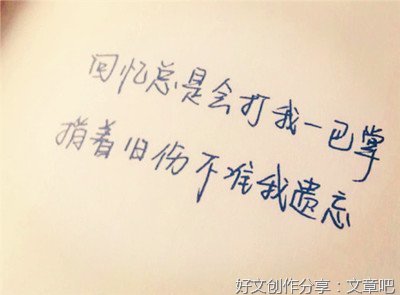 回忆总是会打我一巴掌
指着旧伤不准我遗忘
好文创作分享：文章吧